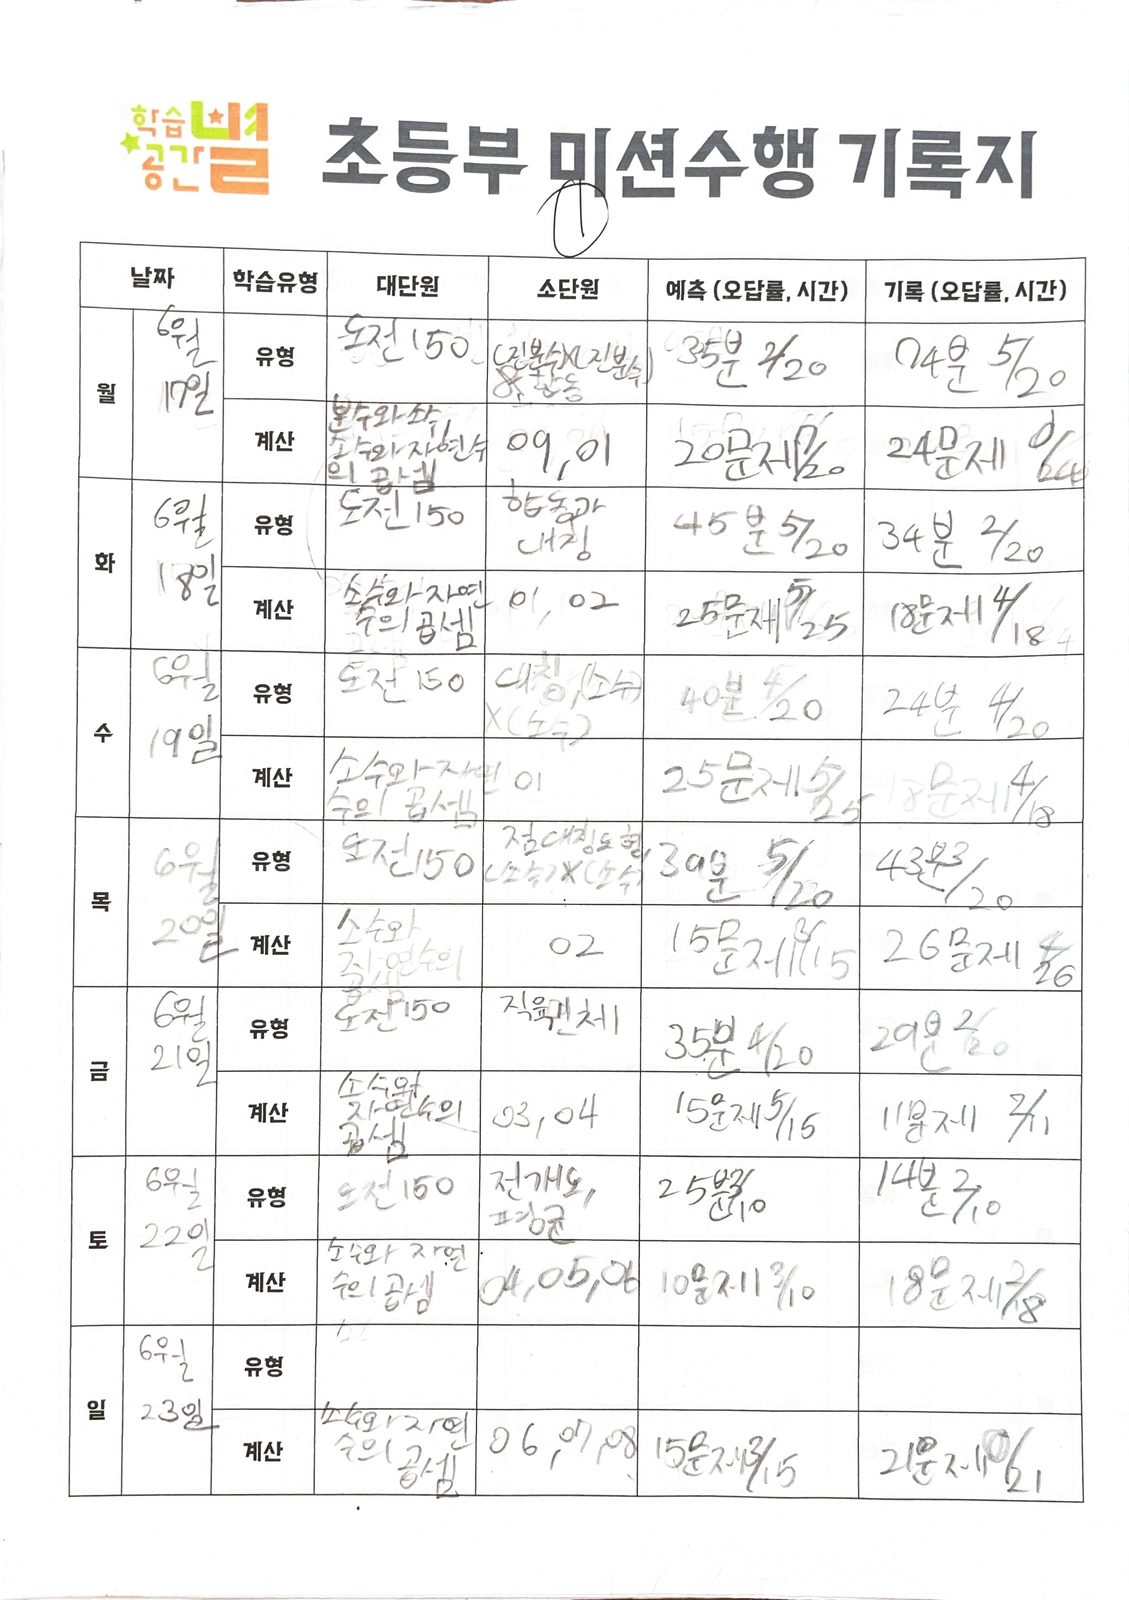 학습
공간 별
초등부 미션수행 기록지
1
날짜 학습유형 대단원 소단원 예측 (오답률, 시간) 기록 (오답률, 시간)
월 6월 17일
유형 도전150 (진분수)×(진분수) & 합동 35분 2/20 74분 5/20
계산 분수와 소수, 소수와 자연수의 곱셈 09, 01 20문제 /20 24문제 0/24
화 6월 18일
유형 도전150 합동과 대칭 45분 5/20 34분 2/20
계산 소수와 자연수의 곱셈 01, 02 25문제 5/25 18문제 4/18
수 6월 19일
유형 도전150 대칭, (소수)×(소수) 40분 4/20 24분 4/20
계산 소수와 자연수의 곱셈 01 25문제 5/25 18문제 4/18
목 6월 20일
유형 도전150 점대칭도형, (소수)×(소수) 39분 5/20 43분 3/20
계산 소수와 자연수의 곱셈 02 15문제 /15 26문제 /26
금 6월 21일
유형 도전150 직육면체 35분 4/20 29분 2/20
계산 소수와 자연수의 곱셈 03, 04 15문제 5/15 11문제 2/11
토 6월 22일
유형 도전150 전개도, 평균 25분 /10 14분 2/10
계산 소수와 자연수의 곱셈 04, 05, 06 10문제 3/10 18문제 2/18
일 6월 23일
유형
계산 소수와 자연수의 곱셈 06, 07, 08 15문제 /15 21문제 0/21